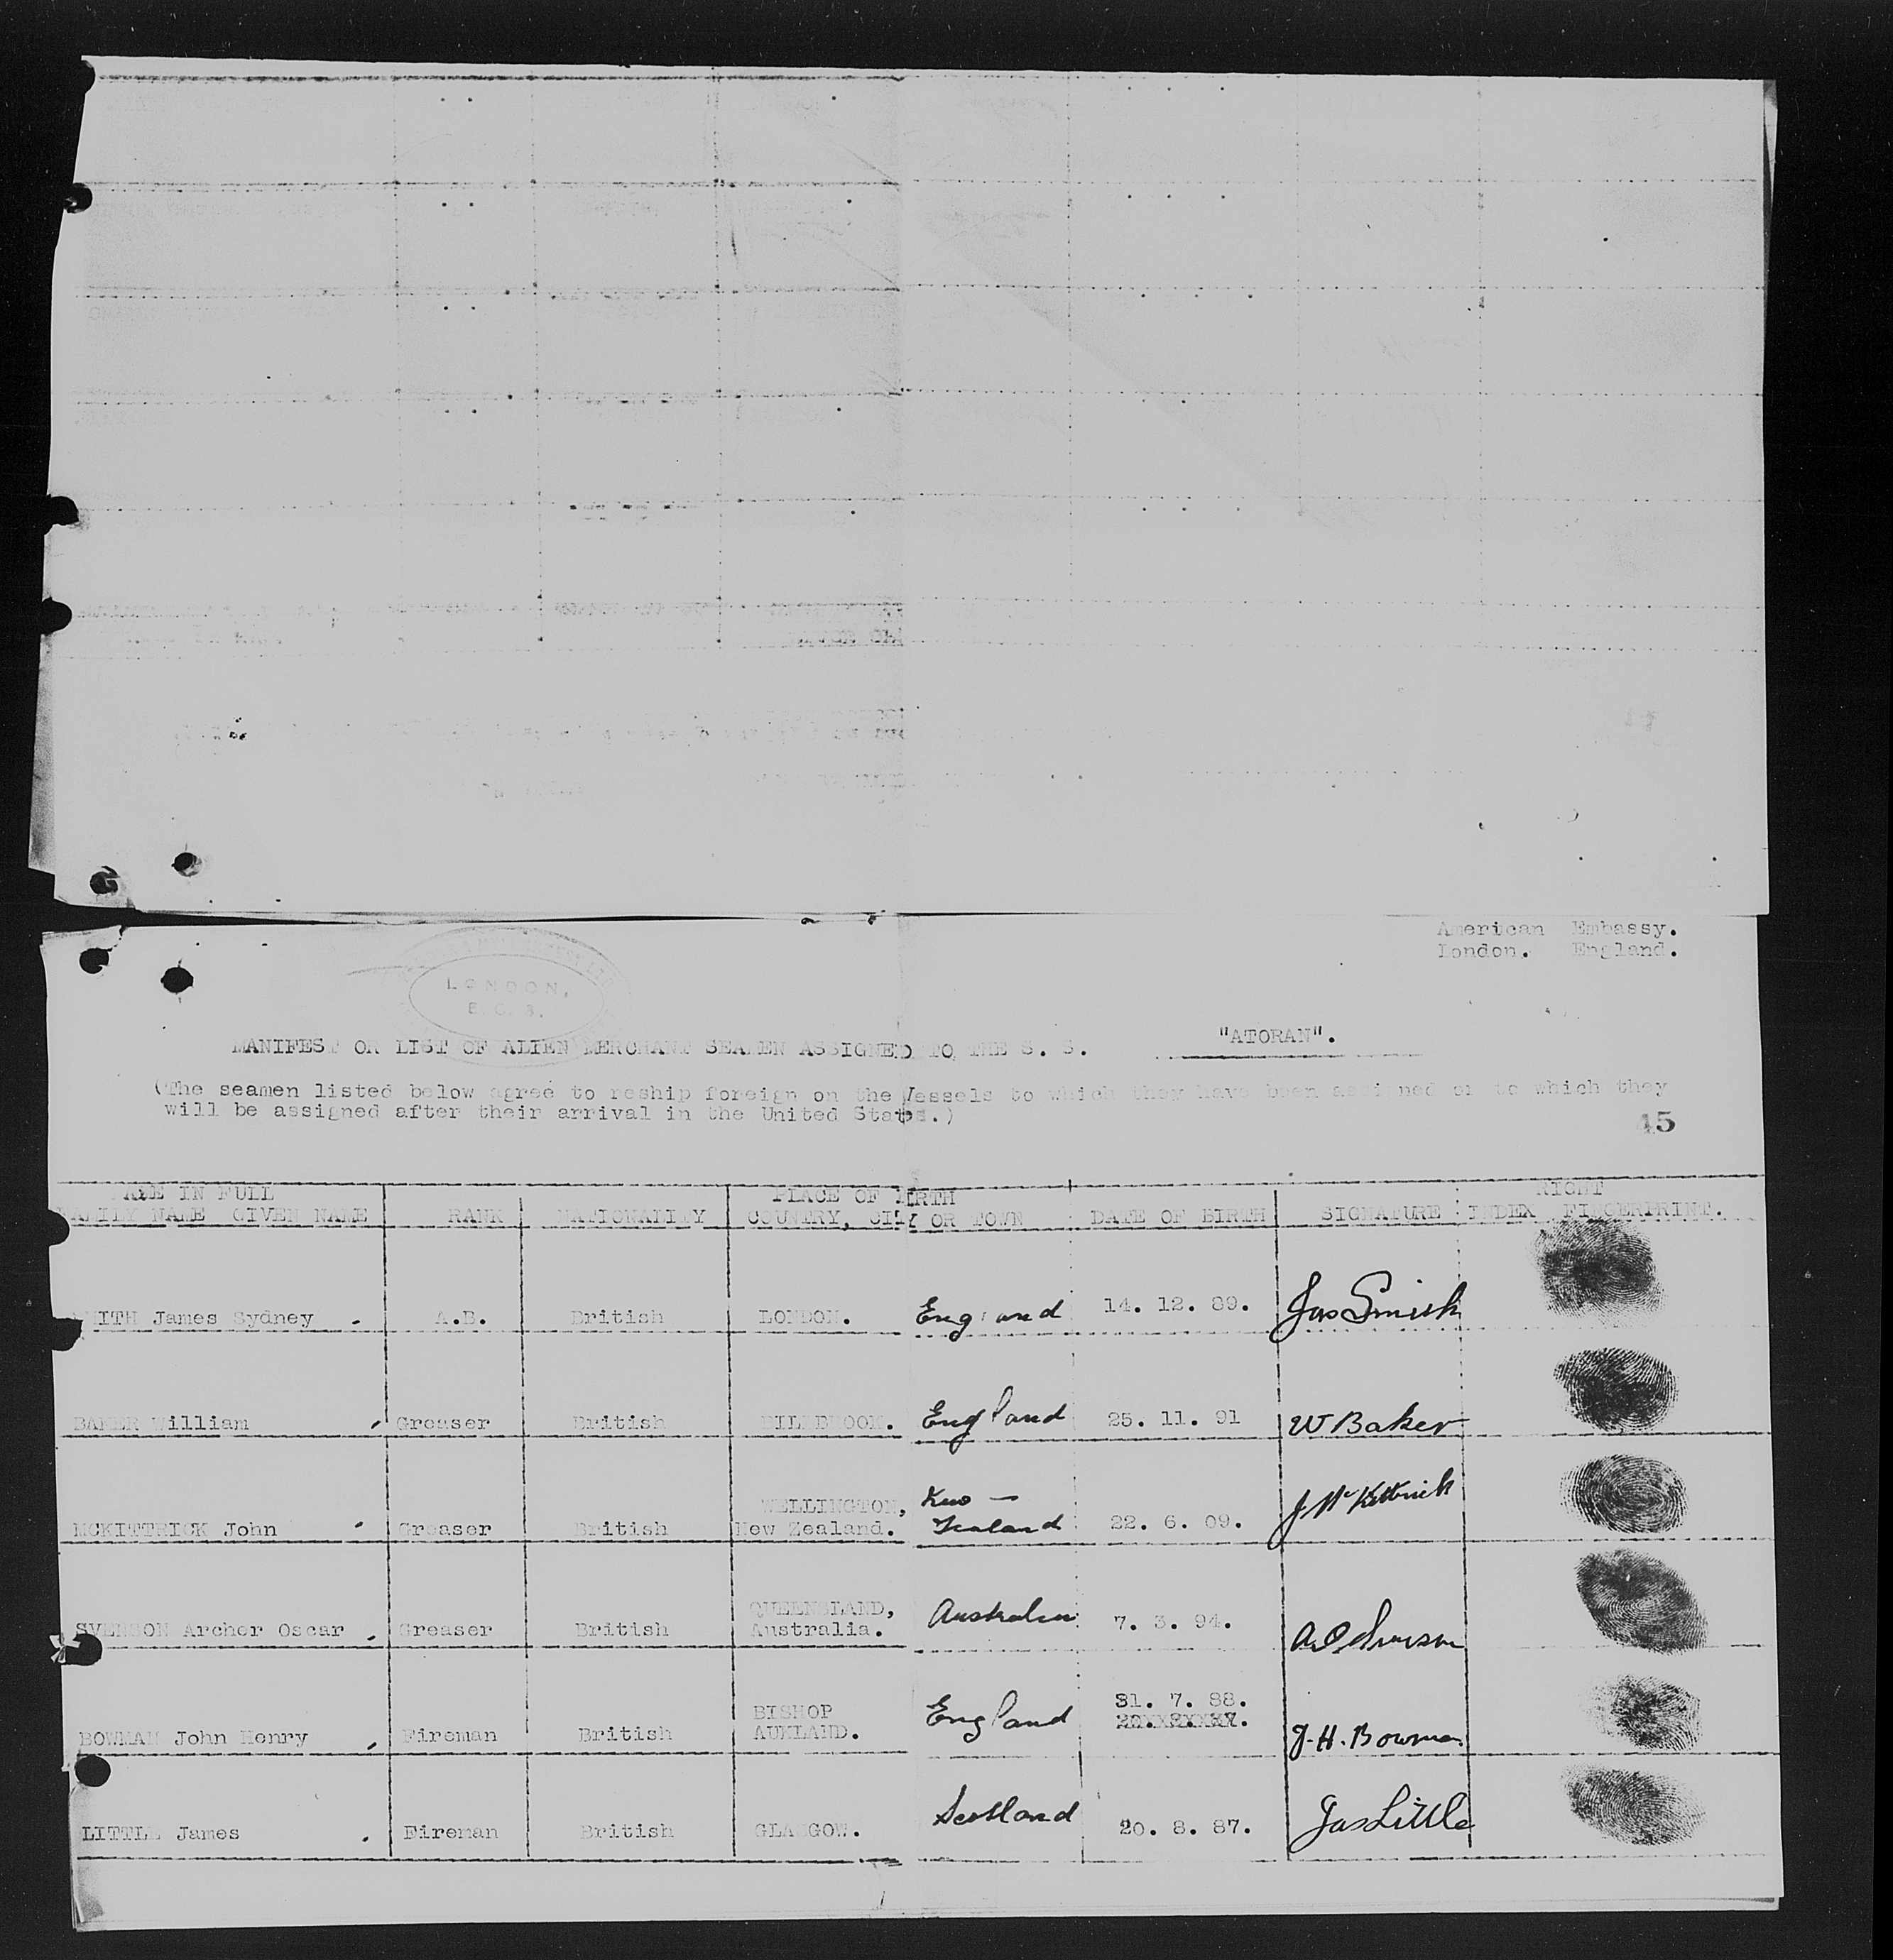 American Embassy.
London. England.
LONDON,
E. C. 3.
MANIFEST OR LIST OF ALIEN MERCHANT SEAMEN ASSIGNED TO THE S. S. "ATORAN".
(The seamen listed below agree to reship foreign on the Vessels to which they have been assigned or to which they
will be assigned after their arrival in the United States.)
45
NAME IN FULL PLACE OF BIRTH RIGHT
FAMILY NAME GIVEN NAME RANK NATIONALITY COUNTRY, CITY OR TOWN DATE OF BIRTH SIGNATURE INDEX FINGERPRINT.
SMITH James Sydney . A.B. British LONDON. England 14. 12. 89. Jas Smith
BAKER William Greaser British England 25. 11. 91 W Baker
WELLINGTON, New —
MCKITTRICK John Greaser British New Zealand. Zealand 22. 6. 09. J McKittrick
QUEENSLAND, Australia
SVENSON Archer Oscar . Greaser British Australia. 7. 3. 94. A O Svenson
BISHOP England 31. 7. 88.
BOWMAN John Henry Fireman British AUKLAND. J. H. Bowman
LITTLE James . Fireman British GLASGOW. Scotland 20. 8. 87. Jas Little